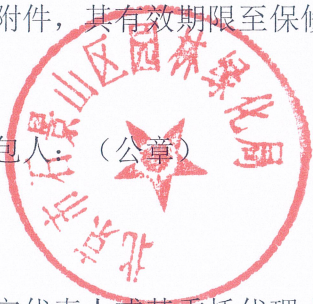 附件，其有效期限至保修
包人：（公章）
北京市石景山区园林绿化局
定代表人或其委托代理